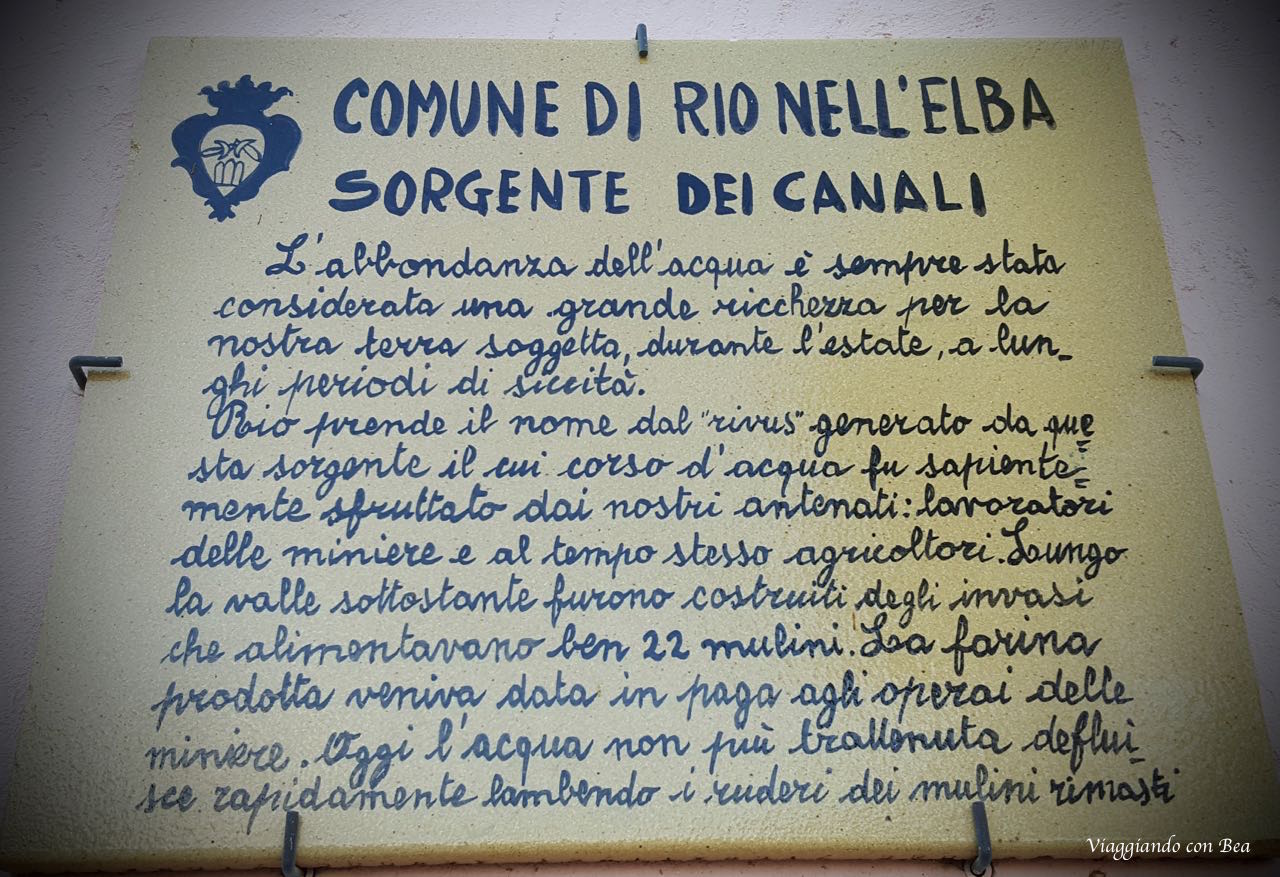 COMUNE DI RIO NELL'ELBA
SORGENTE DEI CANALI
L'abbondanza dell'acqua è sempre stata
considerata una grande ricchezza per la
nostra terra soggetta, durante l'estate, a lun_
ghi periodi di siccità.
Rio prende il nome dal "rivus" generato da que=
sta sorgente il cui corso d'acqua fu sapiente=
mente sfruttato dai nostri antenati: lavoratori
delle miniere e al tempo stesso agricoltori. Lungo
la valle sottostante furono costruiti degli invasi
che alimentavano ben 22 mulini. La farina
prodotta veniva data in paga agli operai delle
miniere. Oggi l'acqua non più trattenuta deflui_
sce rapidamente lambendo i ruderi dei mulini rimasti
Viaggiando con Bea